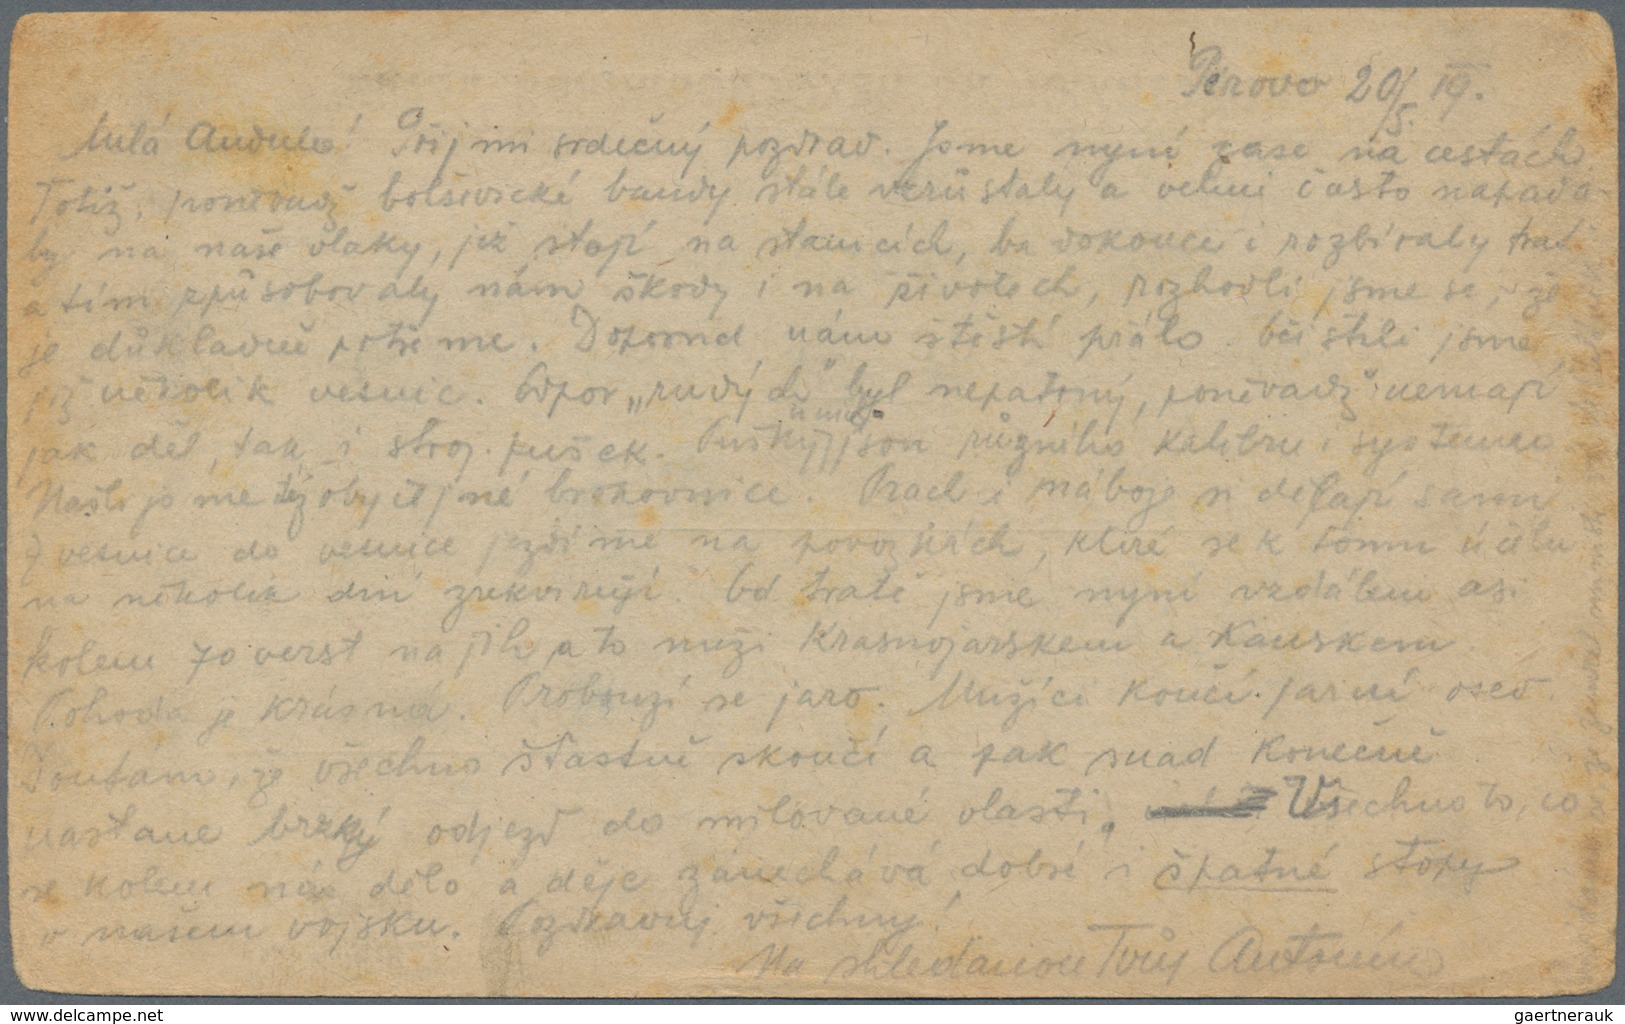 Perovo 20/5. 19.
Milá Andulo! Přijmi srdečný pozdrav. Jsme nyní zase na cestách
Totiž, poněvadž bolševické bandy stále vzrůstaly a velmi často napada-
ly na naše vlaky, jež stojí na stanicích, ba dokonce i rozbíraly trať
a tím způsobovaly nám škody i na životech, rozhodli jsme se, že
je důkladně potřeme. Doposud nám štěstí přálo. Očistili jsme
již několik vesnic. Odpor „rudých" byl nepatrný, poněvadž nemají
jak děl, tak i stroj. pušek. Pušky jsou různého kalibru i systemu
Našli jsme též obyčejné brokovnice. Prach i náboje si dělají sami
Z vesnice do vesnice jezdíme na povozkách, které se k tomu účelu
na několik dní zrekvirují. Od tratě jsme nyní vzdáleni asi
kolem 70 verst na jih a to mezi Krasnojarskem a Kanskem.
Pohoda je krásná. Probouzí se jaro. Mužíci končí jarní osev.
Doufám, že všechno šťastně skončí a pak snad konečně
nastane brzký odjezd do milované vlasti. Všechno to, co
se kolem nás dělo a děje zanechává dobré i špatné stopy
v našem vojsku. Pozdravuj všechny!
Na shledanou Tvůj Antonín
www.delcampe.net
gaertnerauk